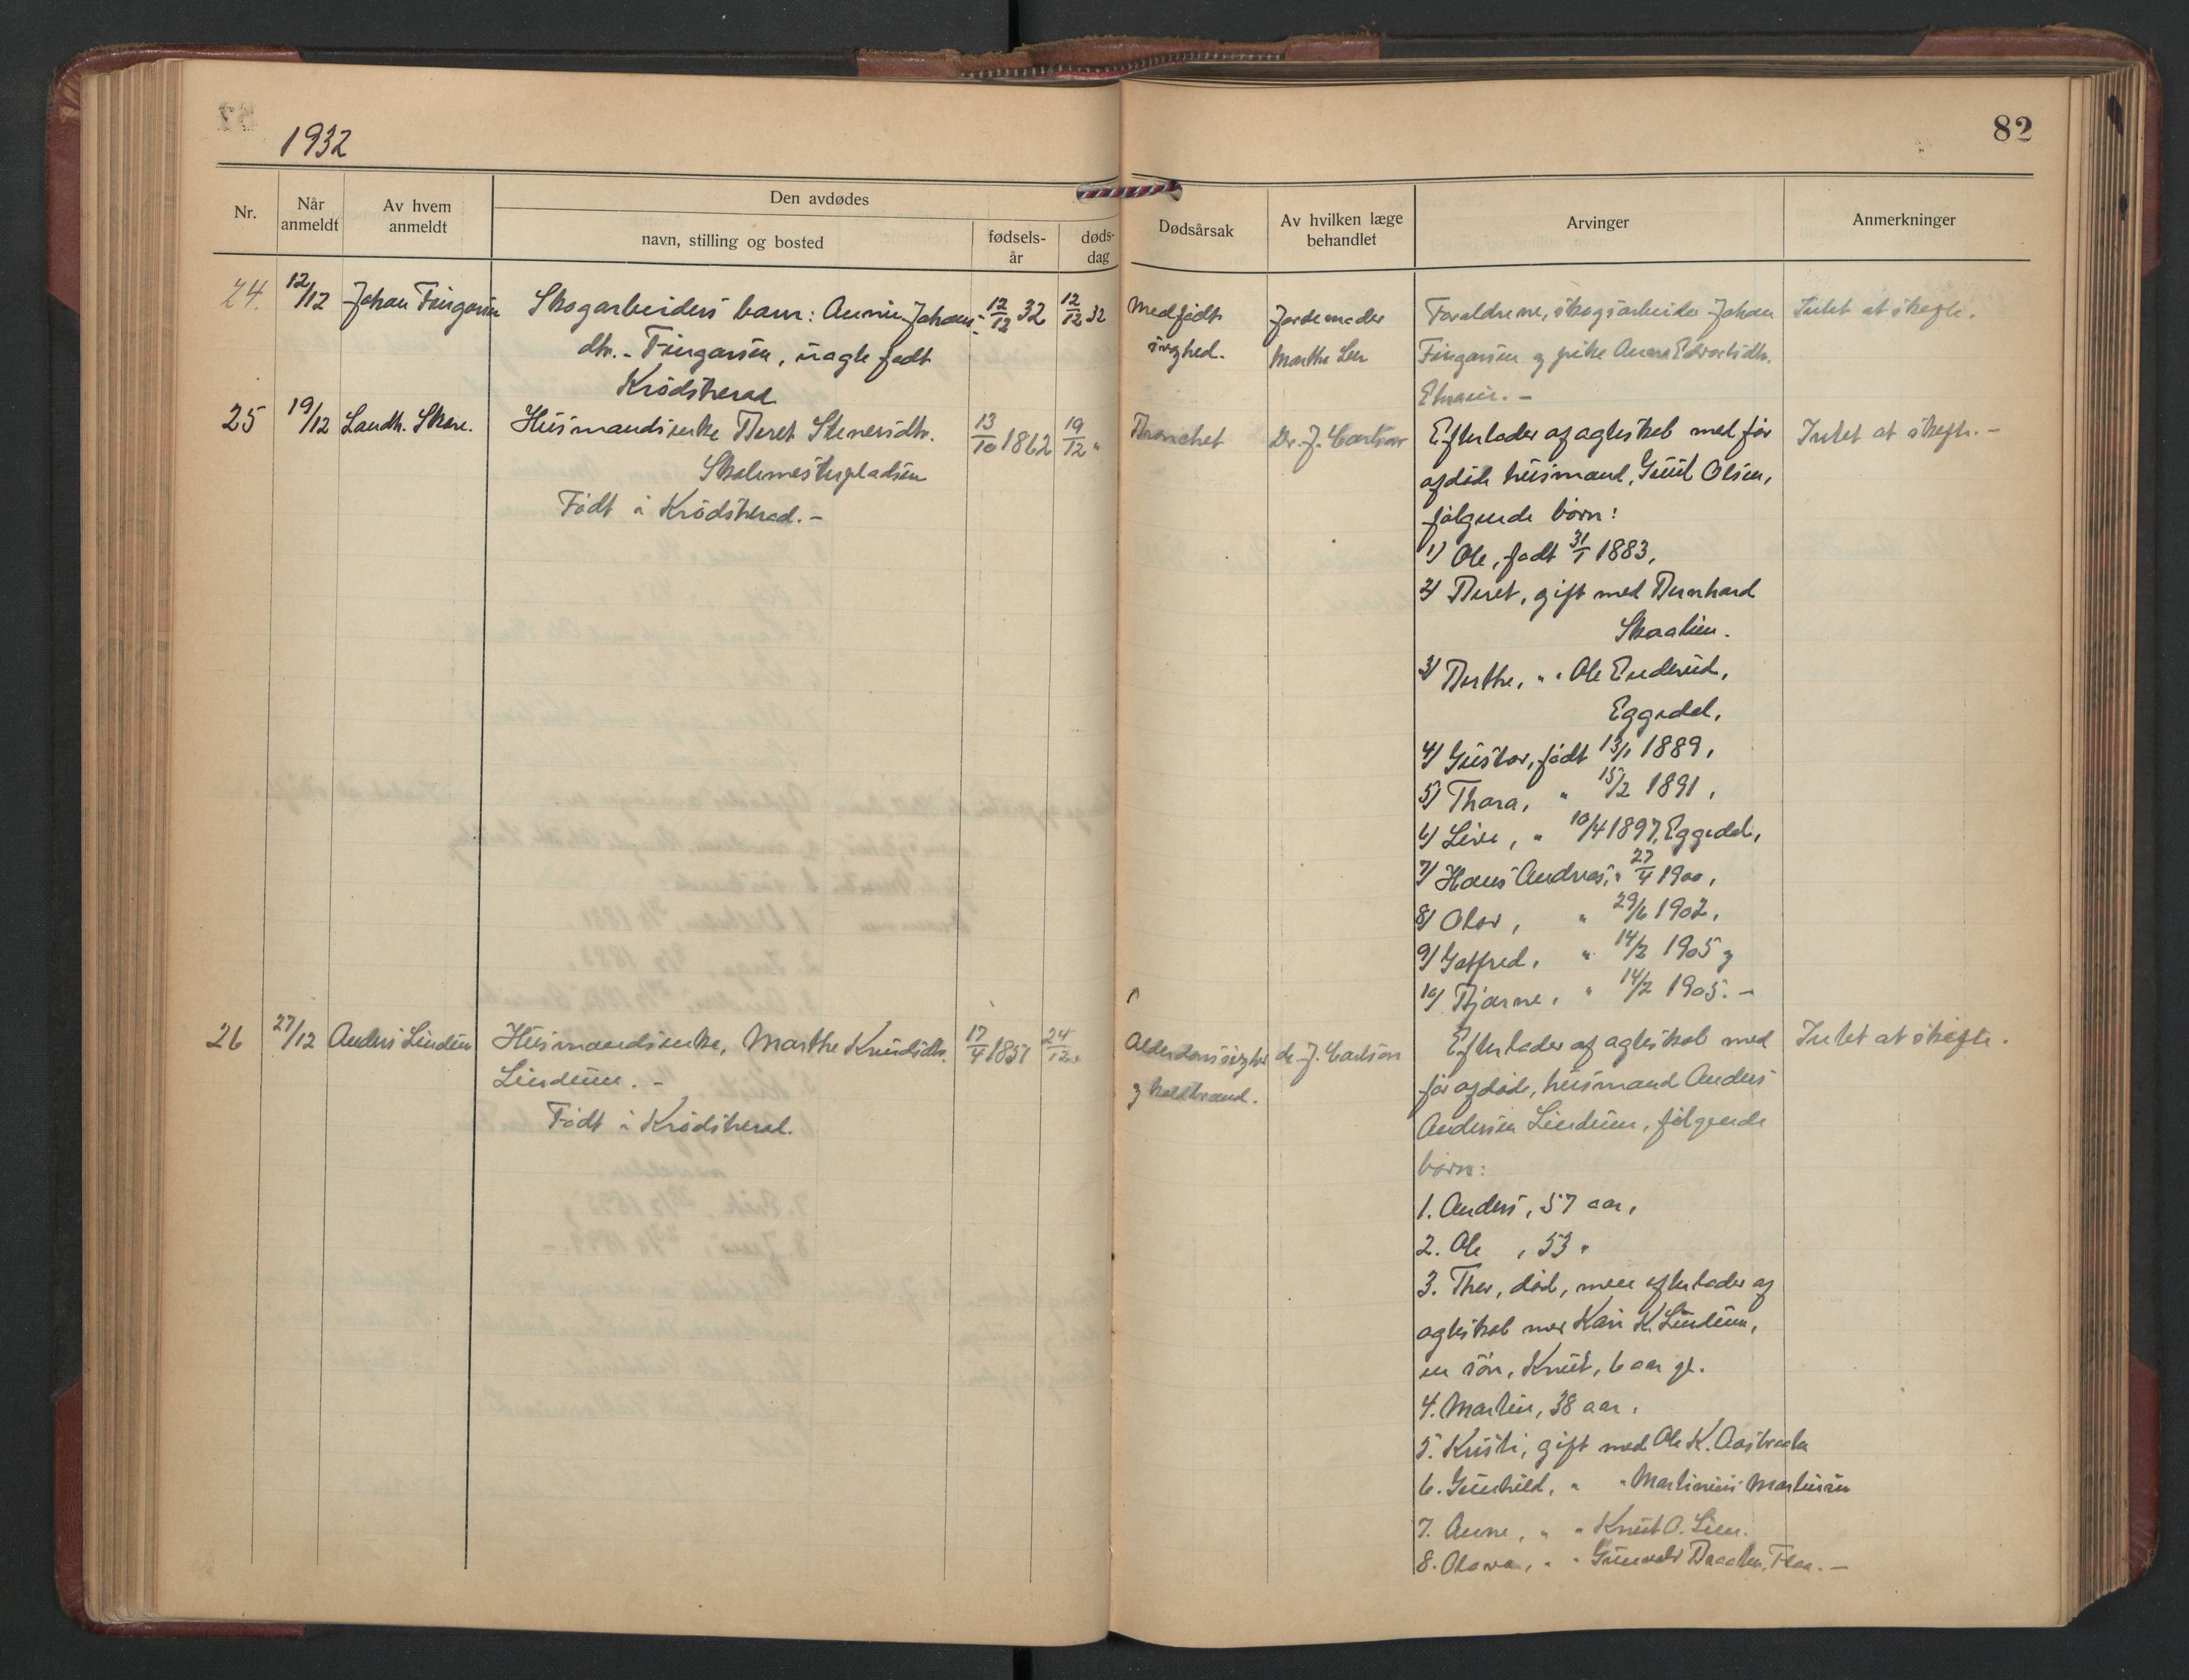 1932
82
Nr.
Når anmeldt
Av hvem anmeldt
Den avdødes
navn, stilling og bosted
fødsels-år
døds-dag
Dødsårsak
Av hvilken læge behandlet
Arvinger
Anmerkninger
24. 12/12 Johan Fingarsen Skogarbeiders barn: Annie Johans- 12/12 32 12/12 32
dtr. - Fingarsen, uægte født
Krødsherad
Medfødt
svaghed.
Jordemoder
Marthe Lien
Forældrene, skogsarbeider Johan
Fingarsen og pike Anna Edvartsdtr.
Intet at skifte.
25 19/12 Landh. Skare. Husmandsenke Beret Stenersdtr. 13/10 1862 19/12 "
Skolemesterpladsen
Født i Krødsherad. -
Bronchet
Dr. J. Carlson
Efterlader af ægteskab med før
afdøde husmand, Guul Olsen,
følgende børn:
1) Ole, født 31/1 1883,
2) Beret, gift med Bernhard
Skaalien.
3) Berthe, " " Ole Enderud,
Eggedal,
4) Gustav, født 13/1 1889,
5) Thora, " 15/2 1891,
6) Live, " 10/4 1897, Eggedal,
7) Hans Andreas, " 27/4 1900,
8) Olav, " 29/6 1902,
9) Gotfred, " 14/2 1905 og
10) Bjarne, " 14/2 1905. -
Intet at skifte. -
26 27/12 Anders Lindum Husmandsenke, Marthe Knudsdtr. 17/4 1851 24/12 "
Lindum. -
Født i Krødsherad.
Alderdomssvaghed
og koldbrand.
dr. J. Carlson
Efterlader af ægteskab med
før afdøde, husmand Anders
Andersen Lindum, følgende
børn:
1. Anders, 57 aar,
2. Ole, 53 "
3. Thor, død, men efterlader af
ægteskab med Kari K. Lindum,
en søn, Knut, 6 aar gl.
4. Martin, 38 aar,
5. Kristi, gift med Ole K. Aasbraaten
6. Gunhild, " " Martinius Martinsen
7. Anne, " " Knut O. Lien.
8. Olava, " " Gunvald Braaten, Flaa. -
Intet at skifte.